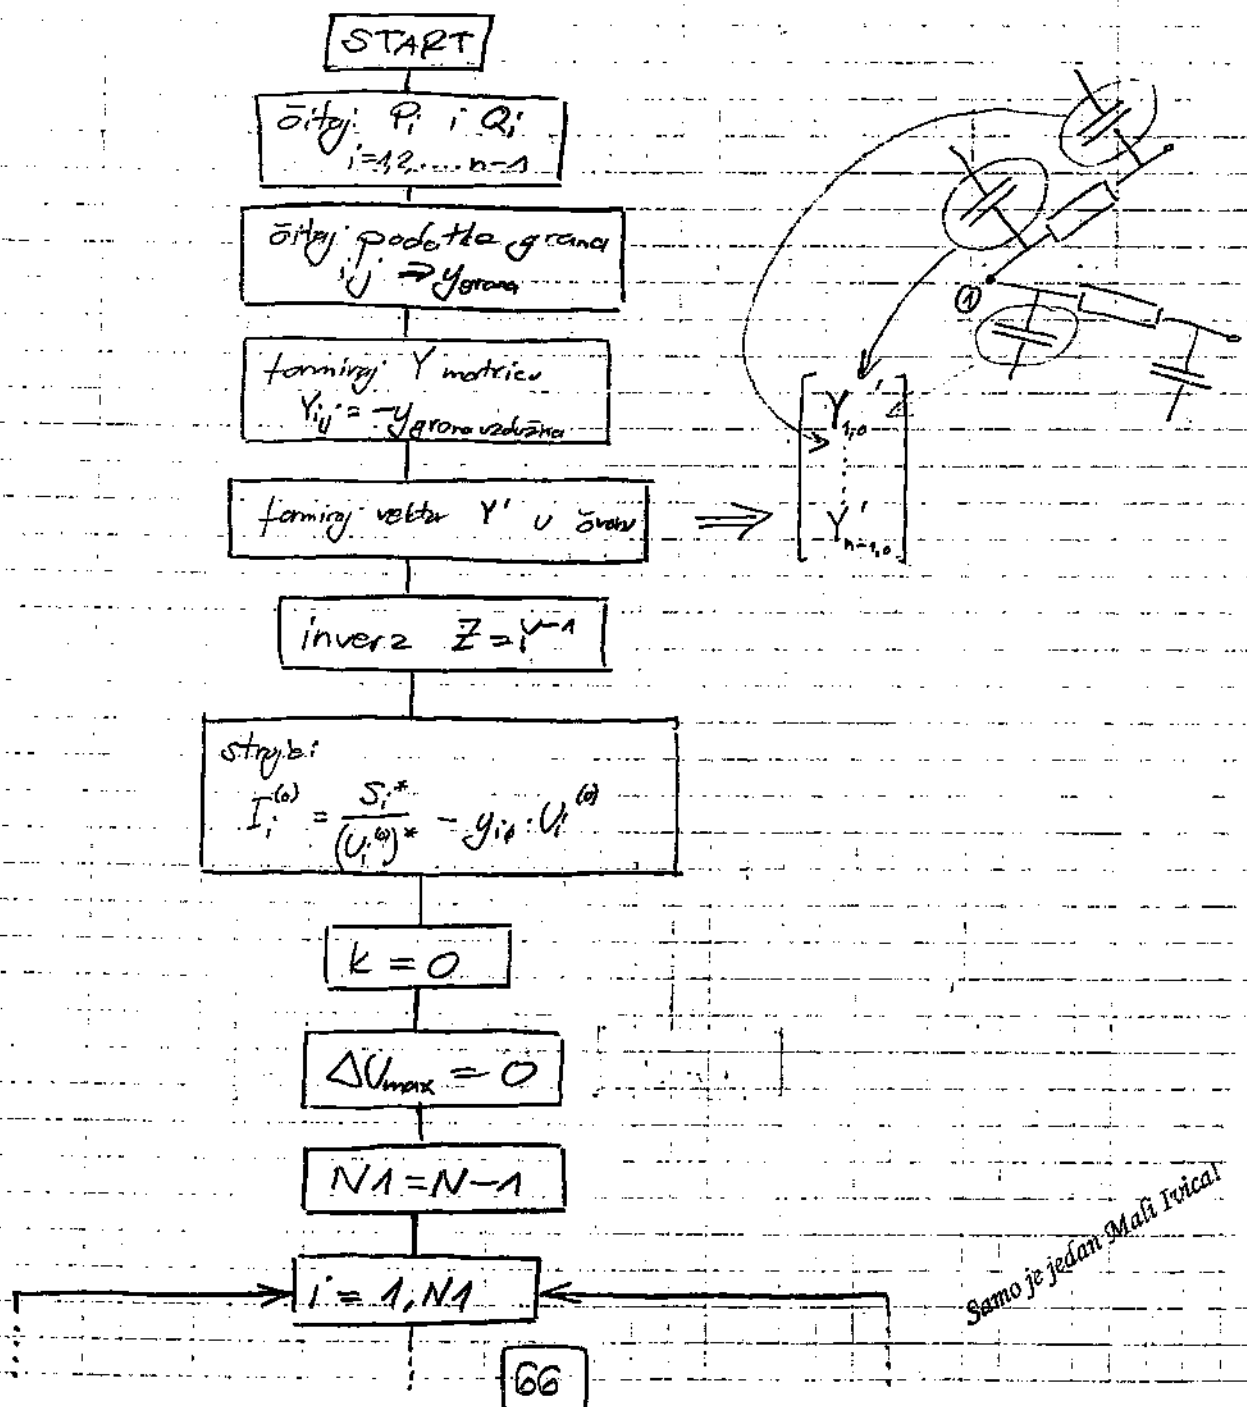 START
čitaj P_i i Q_i
i=1,2,....n-1
čitaj podatke grana
i,j ⇒ y_grana
formiraj Y matricu
Y_ij = -y_grana uzdužna
formiraj vektor Y' u čvoru
⇒
①
Y'_1,0
⋮
Y'_n-1,0
inverz Z = Y^-1
struje:
I_i^(0) = S_i^* / (U_i^(0))^* - y_i0 · U_i^(0)
k = 0
ΔU_max = 0
N1 = N-1
i = 1, N1
Samo je jedan Mali Ivica!
66